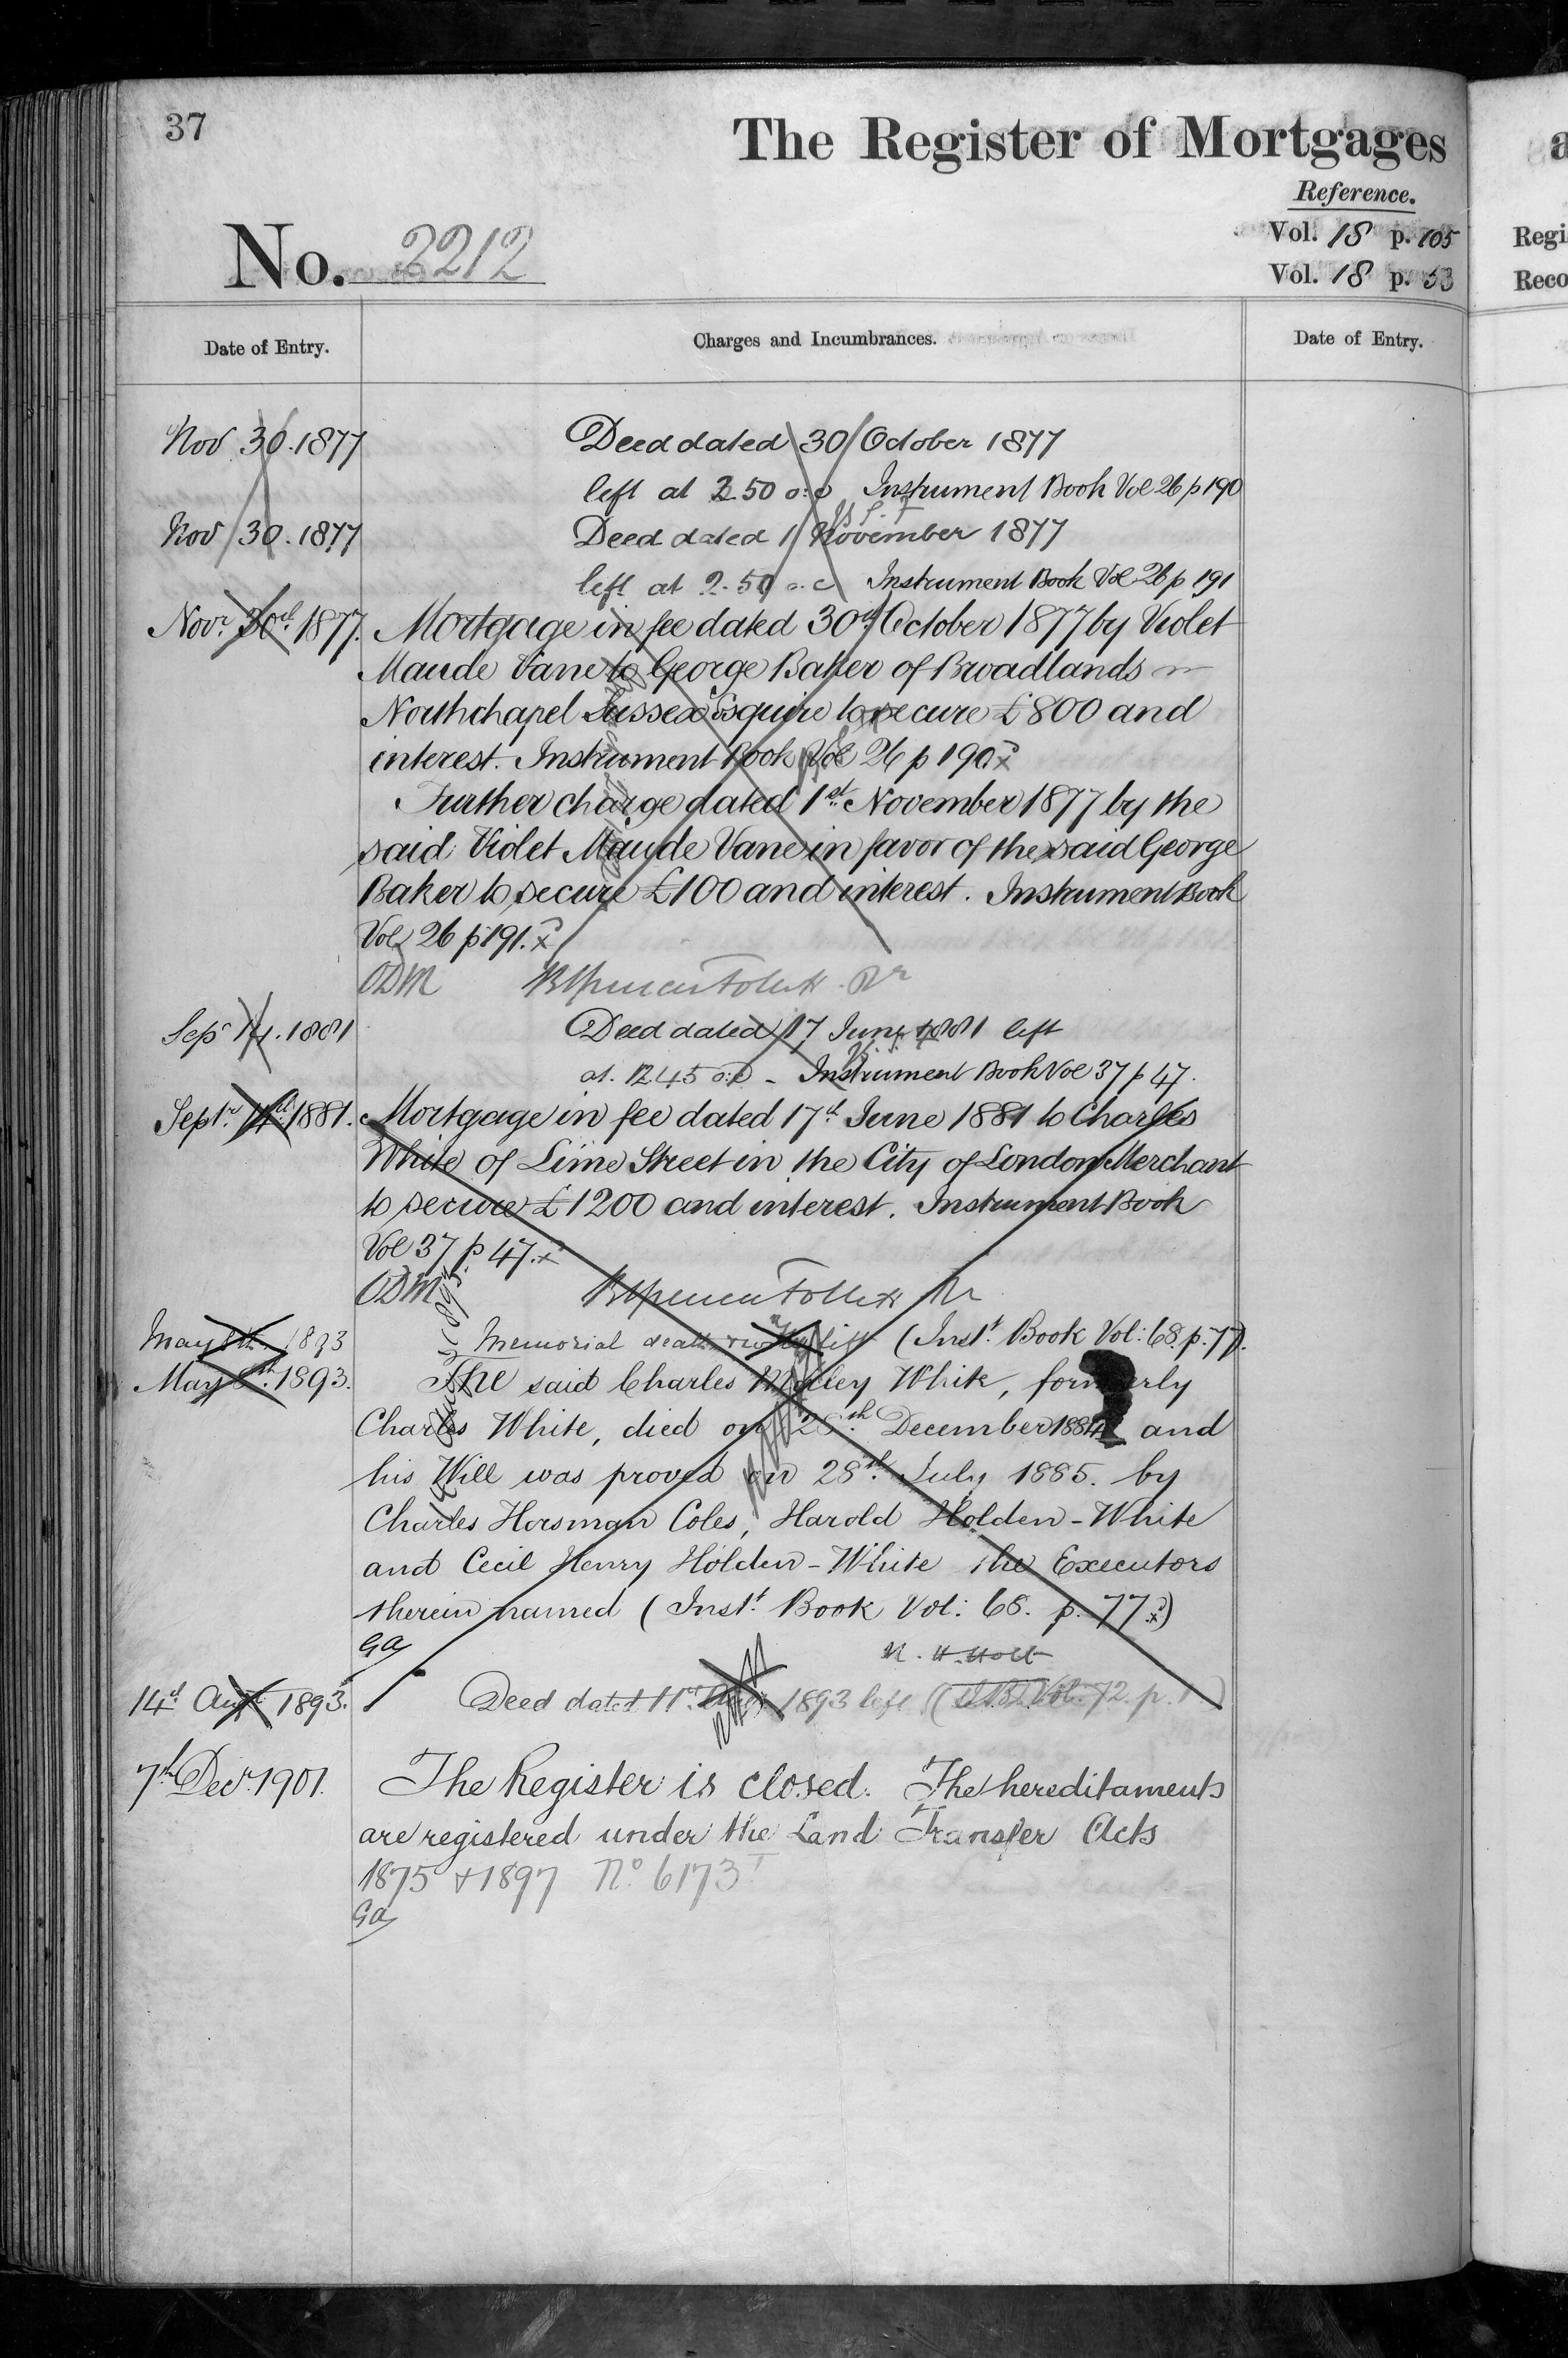 37
The Register of Mortgages
Reference.
No. 2212
Vol. 18 p. 105
Vol. 18 p. 53
Regi
Reco
Date of Entry.
Charges and Incumbrances.
Date of Entry.
Nov 30. 1877
Deed dated 30 October 1877
left at 2.50 o:c Instrument Book Vol 26 p 190
Nov 30. 1877
Deed dated 1 November 1877
left at 2.50 o:c Instrument Book Vol 26 p 191
Novr 30th 1877. Mortgage in fee dated 30th October 1877 by Violet
Maude Vane to George Baker of Broadlands
Northchapel Sussex Esquire to secure £800 and
interest. Instrument Book Vol 26 p 190.
Further charge dated 1st November 1877 by the
said Violet Maude Vane in favor of the said George
Baker to secure £100 and interest. Instrument Book
Vol 26 p 191.
ODM
Sepr 14. 1881
Deed dated 17 June 1881 left
at. 12.45 o:c - Instrument Book Vol 37 p 47.
Septr 14th 1881. Mortgage in fee dated 17th June 1881 to Charles
White of Lime Street in the City of London Merchant
to secure £1200 and interest. Instrument Book
Vol 37 p 47.
ODM
May 8th 1893 Memorial death left (Instt Book Vol: 68. p. 77).
May 8th 1893. The said Charles White, formerly
Charles White, died on December 1884 and
his Will was proved on 28th July 1885. by
Charles Horsman Coles, Harold Holden-White
and Cecil Henry Holden-White the Executors
therein named (Instt Book Vol: 68. p. 77)
GA
14th Augt 1893. Deed dated 11th Augt 1893 left (I.B. Vol. 72. p. 1)
7th Decr 1901. The Register is closed. The hereditaments
are registered under the Land Transfer Acts
1875 & 1897 No 6173
GA